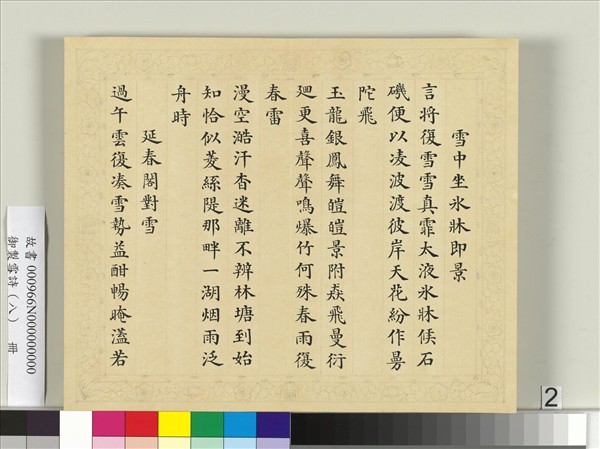 雪中坐氷牀即景
言将復雪雪真霏太液氷牀候石
磯便以凌波渡彼岸天花紛作曼
陀飛
玉龍銀鳳舞皚皚景附猋飛曼衍
廻更喜聲聲鳴爆竹何殊春雨復
春雷
漫空澔汗杳迷離不辨林塘到始
知恰似菱絲隄那畔一湖烟雨泛
舟時
延春閣對雪
過午雲復凑雪勢益酣暢晻濭若
故書 000966N000000000
御製雪詩(八) 冊
2